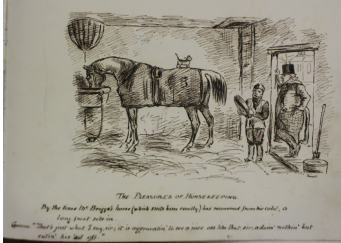 THE PLEASURES OF HORSEKEEPING
By the time Mr Briggs's horse (which suits him exactly) has recovered from his cold, a
long frost sets in.
Groom "That's just what I say, sir; it is aggravatin' to see a nice oss like that, sir, adoin' nothin' but
eatin' his 'ed off"